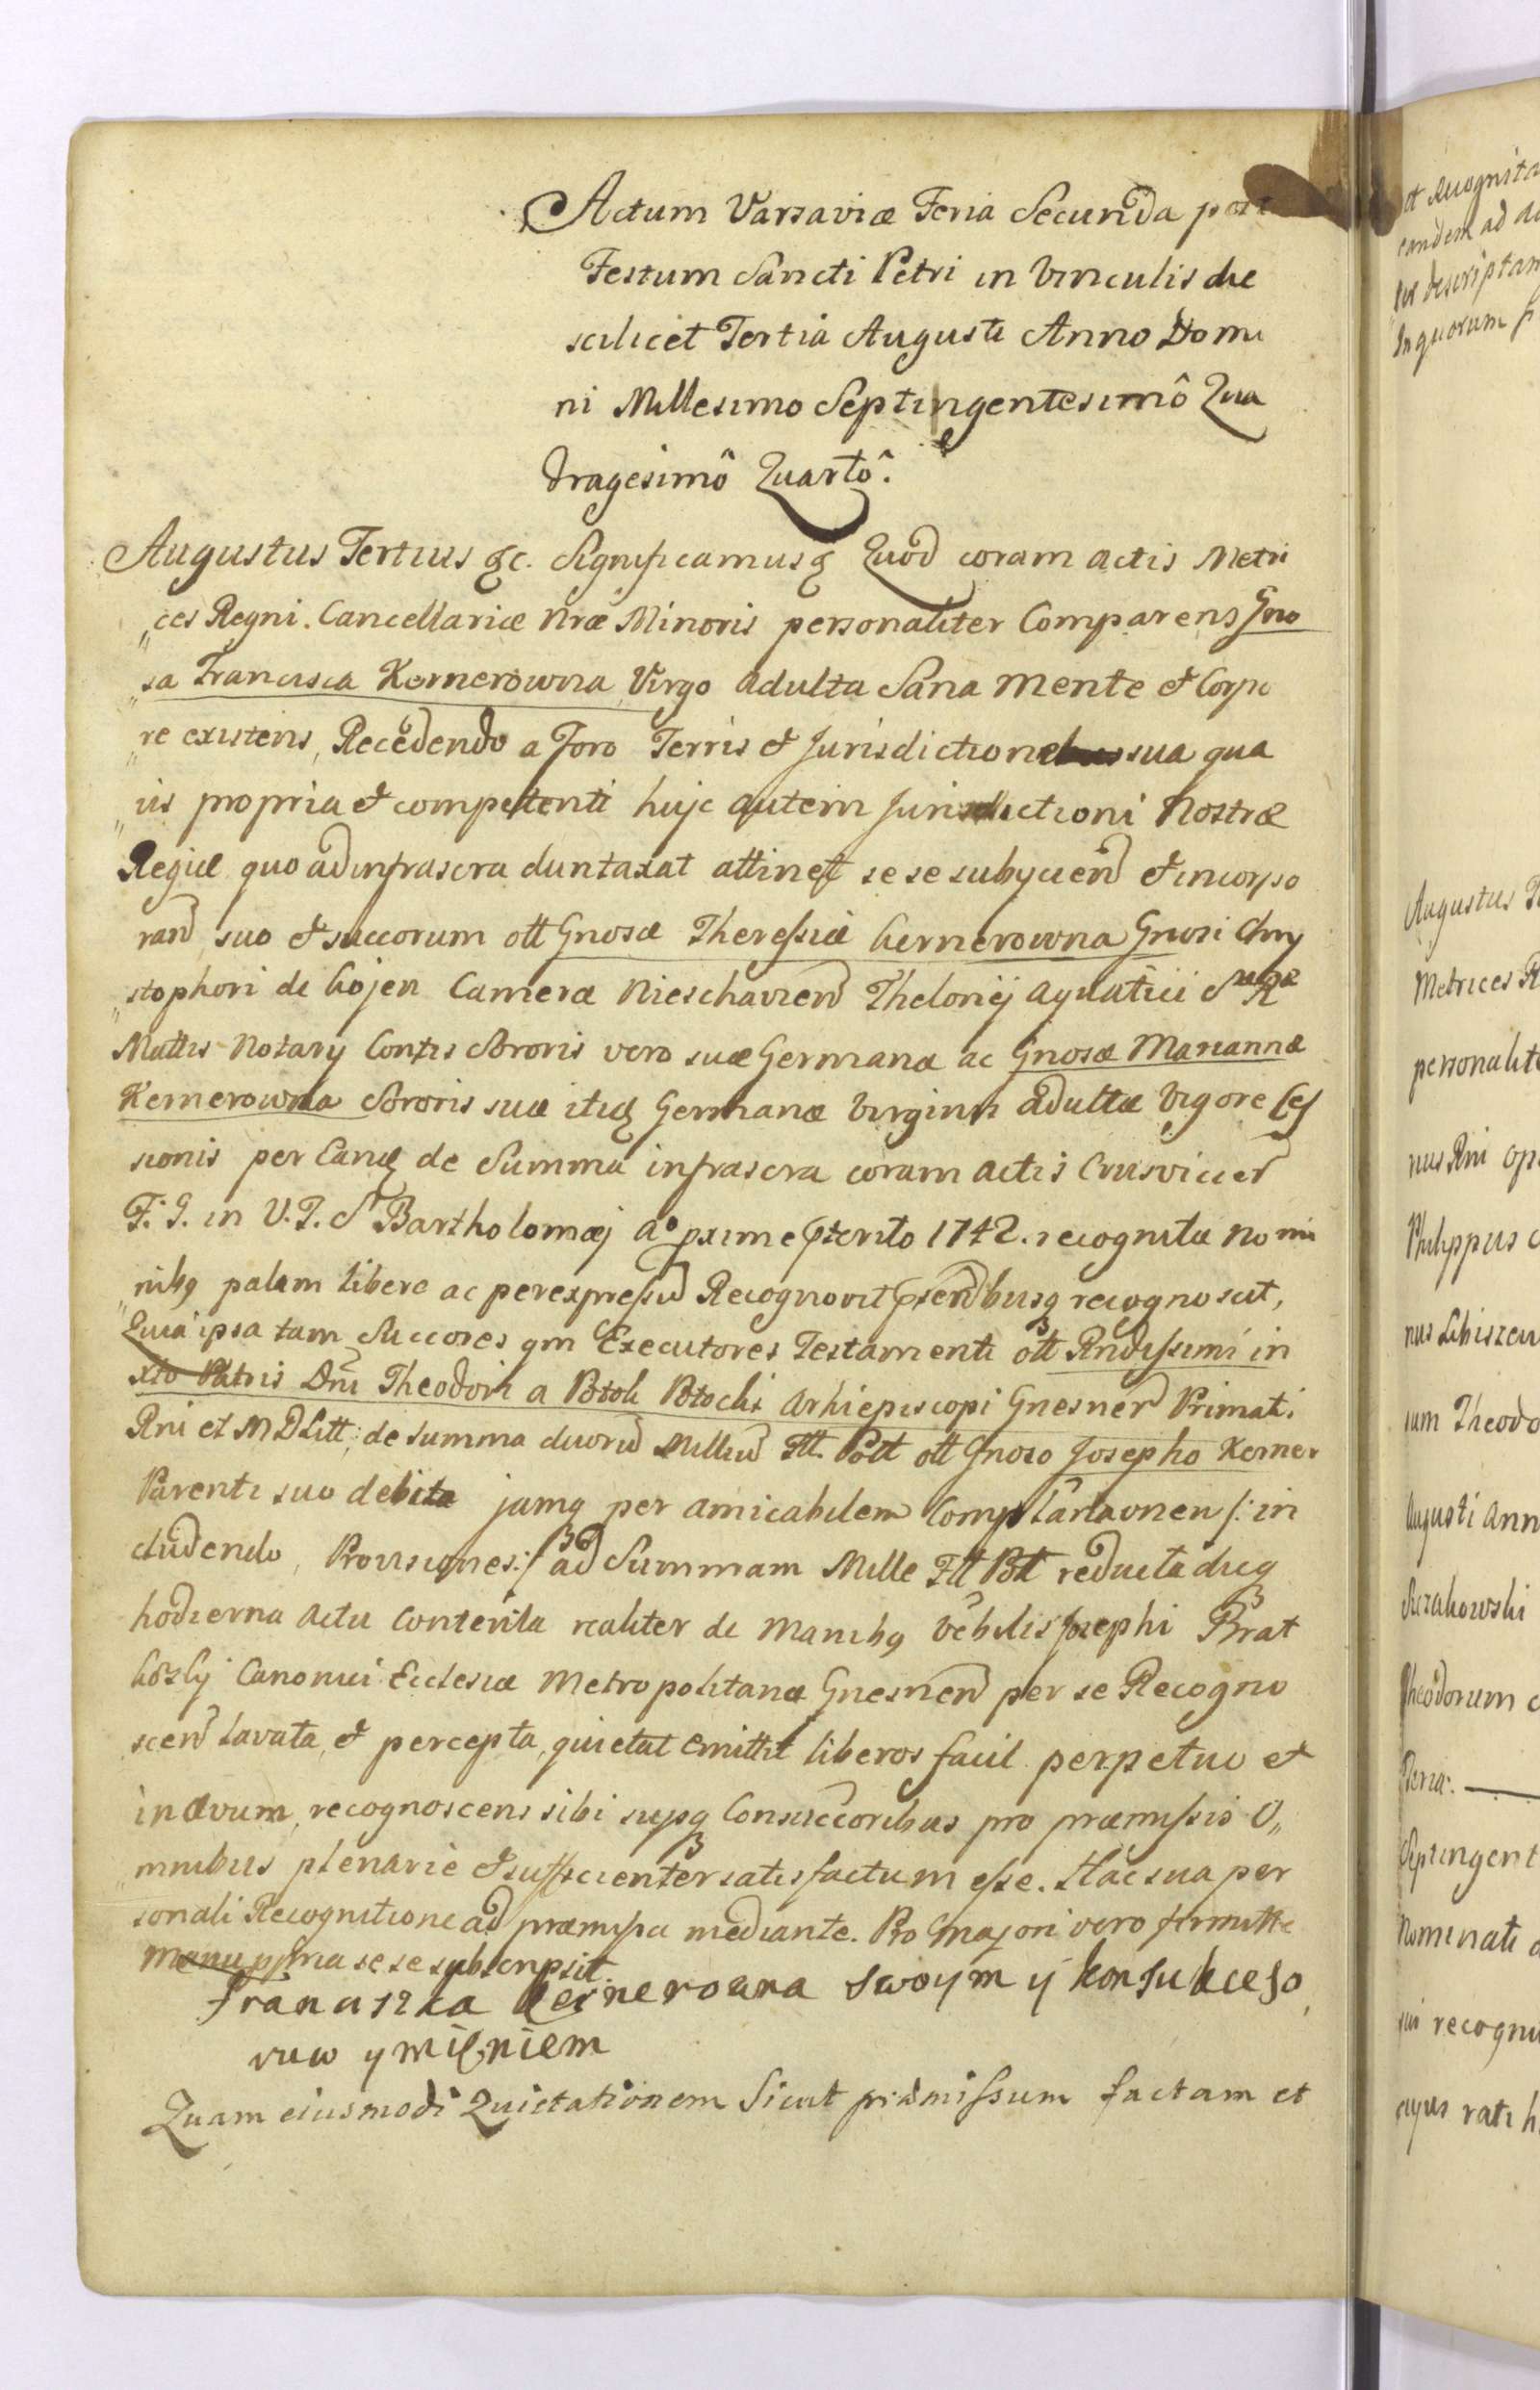 Actum Varsaviæ Feria Secunda post
Festum Sancti Petri in Vinculis die
scilicet Tertia Augusti Anno Domi
ni Millesimo Septingentesimô Qua
dragesimô Quartô.
Augustus Tertius &c. Significamus Quod coram actis Metri
ces Regni. Cancellariæ Nræ Minoris personaliter Comparens Gno
sa Francisca Kernerowna Virgo adulta Sana mente et Corpo
re existens, Recedendo a Foro Terris et Jurisdictione sua qua
vis propria et competenti hujc autem Jurisdictioni Nostræ
Regiæ quo ad infrascra duntaxat attinet se se subjiciend et incorpo
rand, suo et succorum ott Gnosæ Theressiæ Kernerowna Gnosi Chry
stophori de Kojen Cameræ Nieschavien Thelonij aquatici S RR
Mattis Notarij Contis Sororis vero suæ Germanæ ac Gnosæ Mariannæ
Kernerowna Sororis suæ itq Germanæ Virginis adultæ Vigore Ces
sionis per Eand de Summa infrascra coram actis Crusvicien
F. 3. in V. F. S Bartholomæj Aº pxime pterito 1742. recognitæ nomi
nibq palam libere ac per expressu Recognovit psendbusq recognoscit,
Quia ipsa tam Succores qm Executores Testamenti ott Rndissimi in
xto Patris Dni Theodori a Potok Potocki Arhiepiscopi Gnesnen Primati
Rni et M D Litt; de summa duoru Milliu Fll. Poll ott Gnoso Josepho Kerner
Parenti suo debita jamq per amicabilem Complanaonem /: in
cludendo, Provisiones :/ ad Summam Mille Fll Poll reducta dieq
hodierna actu contenta realiter de manibq Vebilis Josephi Brat
koski Canonici Ecclesiæ Metropolitanæ Gnesnen per se Recogno
scen levata, et percepta, quietat emittit liberos facit perpetuo et
in ævum, recognoscens sibi suisq Consuccoribus pro præmissis O,,
mnibus plenarie et sufficienter satisfactum esse. Hac sua per
sonali Recognitione ad præmissa mediante. Pro majori vero firmitte
Manu ppria se se subscripsit.
Franciszka Kernerowna swoym y konsukceso
ruw ymięniem
Quam eiusmodi Quietationem Sicut præmissum factam et